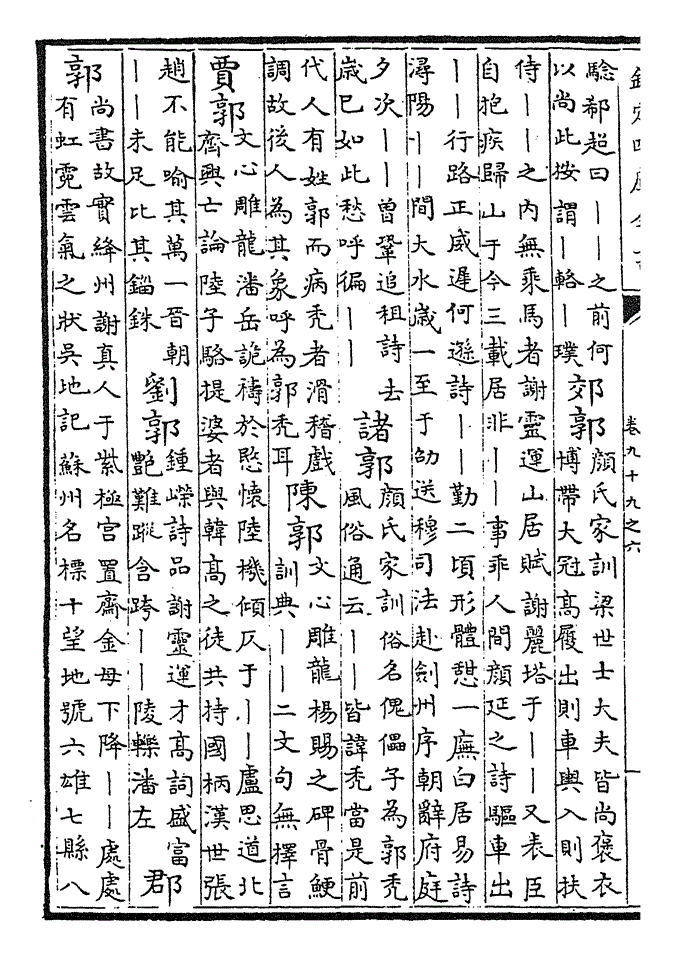 欽定四庫全書
卷九十九之六
一
騐郗超曰——之前何
以尚此按謂—輅—璞
郊郭
顔氏家訓梁世士大夫皆尚褒衣
博帶大冠高履出則車輿入則扶
侍——之内無乘馬者謝靈運山居賦謝麗塔于——又表臣
自抱疾歸山于今三載居非——事乖人間顔延之詩驅車出
——行路正威遲何遜詩——勤二頃形體憇一廡白居易詩
潯陽——間大水歲一至于邵送穆司法赴劍州序朝辭府庭
夕次——曾鞏追祖詩去
歲已如此愁呼徧——
諸郭
顔氏家訓俗名傀儡子為郭秃
風俗通云——皆諱秃當是前
代人有姓郭而病秃者滑稽戲
調故後人為其象呼為郭秃耳
陳郭
文心雕龍楊賜之碑骨鯁
訓典——二文句無擇言
賈郭
文心雕龍潘岳詭禱於愍懷陸機傾仄于——盧思道北
齊興亡論陸子駱提婆者與韓高之徒共持國柄漢世張
趙不能喻其萬一晉朝
——未足比其錙銖
劉郭
鍾嶸詩品謝靈運才高詞盛富
艷難蹤含跨——陵轢潘左
郡
郭
尚書故實絳州謝真人于紫極宫置齋金母下降——處處
有虹霓雲氣之狀吳地記蘇州名標十望地號六雄七縣八